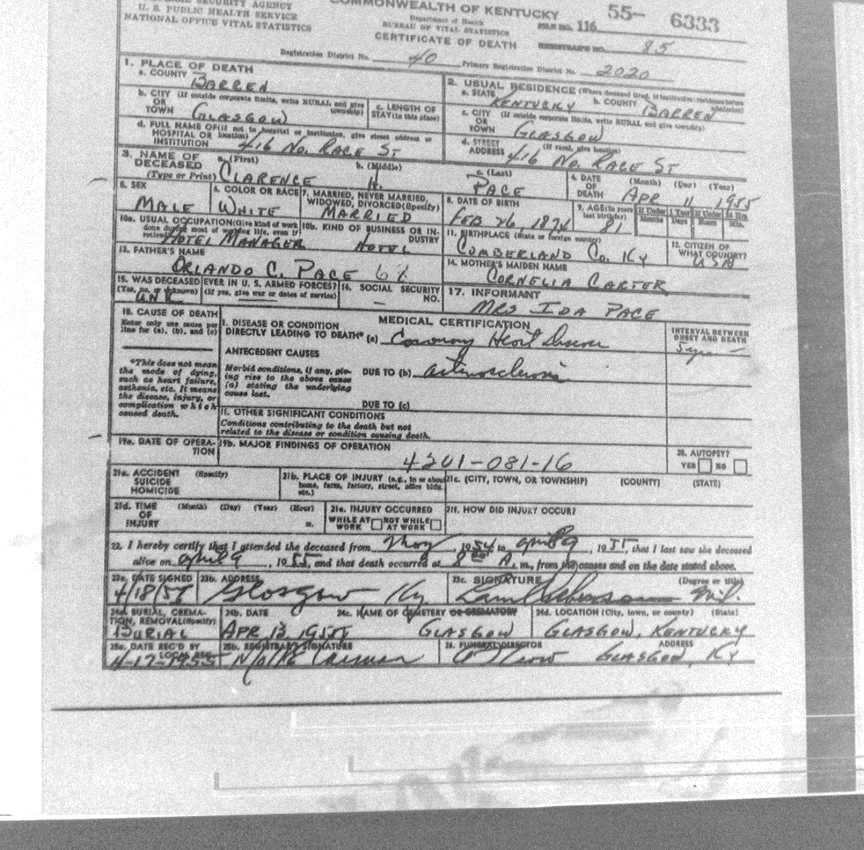 SECURITY AGENCY
U. S. PUBLIC HEALTH SERVICE
NATIONAL OFFICE VITAL STATISTICS
COMMONWEALTH OF KENTUCKY
Department of Health
BUREAU OF VITAL STATISTICS
CERTIFICATE OF DEATH
55- 6333
FILE NO. 116
REGISTRAR'S NO. 85
Registration District No. 40 Primary Registration District No. 2020
1. PLACE OF DEATH
a. COUNTY BARREN
b. CITY (If outside corporate limits, write RURAL and give township) OR TOWN GLASGOW
c. LENGTH OF STAY (in this place)
d. FULL NAME OF (If not in hospital or institution, give street address or location) HOSPITAL OR INSTITUTION 416 NO. RACE ST
2. USUAL RESIDENCE (Where deceased lived, If institution: residence before admission)
a. STATE KENTUCKY b. COUNTY BARREN
c. CITY (If outside corporate limits, write RURAL and give township) OR TOWN GLASGOW
d. STREET ADDRESS (If rural, give location) 416 NO. RACE ST
3. NAME OF DECEASED (Type or Print)
a. (First) CLARENCE
b. (Middle) H.
c. (Last) PACE
4. DATE OF DEATH (Month) (Day) (Year) APR 11 1955
5. SEX MALE
6. COLOR OR RACE WHITE
7. MARRIED, NEVER MARRIED, WIDOWED, DIVORCED (Specify) MARRIED
8. DATE OF BIRTH FEB 26 1874
9. AGE (In years last birthday) 81
If Under 1 Year Months Days If Under 24 Hrs. Hours Min.
10a. USUAL OCCUPATION (Give kind of work done during most of working life, even if retired) HOTEL MANAGER
10b. KIND OF BUSINESS OR INDUSTRY HOTEL
11. BIRTHPLACE (State or foreign country) CUMBERLAND CO. KY
12. CITIZEN OF WHAT COUNTRY? USA
13. FATHER'S NAME ORLANDO C. PACE
14. MOTHER'S MAIDEN NAME CORNELIA CARTER
15. WAS DECEASED EVER IN U. S. ARMED FORCES? (Yes, no, or unknown) (If yes, give war or dates of service) UNK
16. SOCIAL SECURITY NO. —
17. INFORMANT MRS IDA PACE
18. CAUSE OF DEATH
Enter only one cause per line for (a), (b), and (c)
*This does not mean the mode of dying, such as heart failure, asthenia, etc. It means the disease, injury, or complication which caused death.
MEDICAL CERTIFICATION
INTERVAL BETWEEN ONSET AND DEATH
I. DISEASE OR CONDITION DIRECTLY LEADING TO DEATH* (a) Coronary Heart Disease 5 yrs
ANTECEDENT CAUSES
Morbid conditions, if any, giving rise to the above cause (a) stating the underlying cause last.
DUE TO (b) arteriosclerosis
DUE TO (c)
II. OTHER SIGNIFICANT CONDITIONS
Conditions contributing to the death but not related to the disease or condition causing death.
19a. DATE OF OPERATION
19b. MAJOR FINDINGS OF OPERATION
4201-081-16
20. AUTOPSY? YES NO
21a. ACCIDENT SUICIDE HOMICIDE (Specify)
21b. PLACE OF INJURY (e.g., in or about home, farm, factory, street, office bldg. etc.)
21c. (CITY, TOWN, OR TOWNSHIP) (COUNTY) (STATE)
21d. TIME OF INJURY (Month) (Day) (Year) (Hour) m.
21e. INJURY OCCURRED WHILE AT WORK NOT WHILE AT WORK
21f. HOW DID INJURY OCCUR?
22. I hereby certify that I attended the deceased from 1954 to april 9, 1955, that I last saw the deceased
alive on april 9, 1955, and that death occurred at 8 A. m., from the causes and on the date stated above.
23a. DATE SIGNED 4/18/55
23b. ADDRESS Glasgow Ky
23c. SIGNATURE (Degree or title) M.D.
24a. BURIAL, CREMATION, REMOVAL (Specify) BURIAL
24b. DATE APR 13, 1955
24c. NAME OF CEMETERY OR CREMATORY GLASGOW
24d. LOCATION (City, town, or county) (State) GLASGOW, KENTUCKY
25a. DATE REC'D BY LOCAL REG.
25b. REGISTRAR'S SIGNATURE
26. FUNERAL DIRECTOR ADDRESS GLASGOW, KY